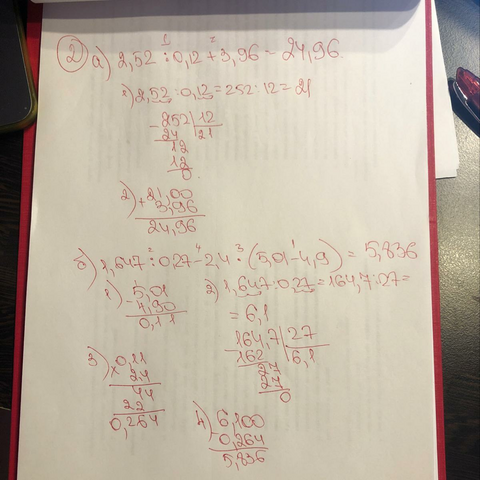 ② а) 2,52 : 0,12 + 3,96 = 24,96.
1 2
1) 2,52 : 0,12 = 252 : 12 = 21
- 252 | 12
24 21
12
12
0
2) + 21,00
3,96
24,96
б) 1,647 : 0,27 - 2,4 · (5,01 - 4,9) = 5,836
2 4 3 1
1) - 5,01
4,90
0,11
2) 1,647 : 0,27 = 164,7 : 27 =
= 6,1
- 164,7 | 27
162 6,1
27
27
0
3) × 0,11
2,4
44
22
0,264
4) - 6,100
0,264
5,836